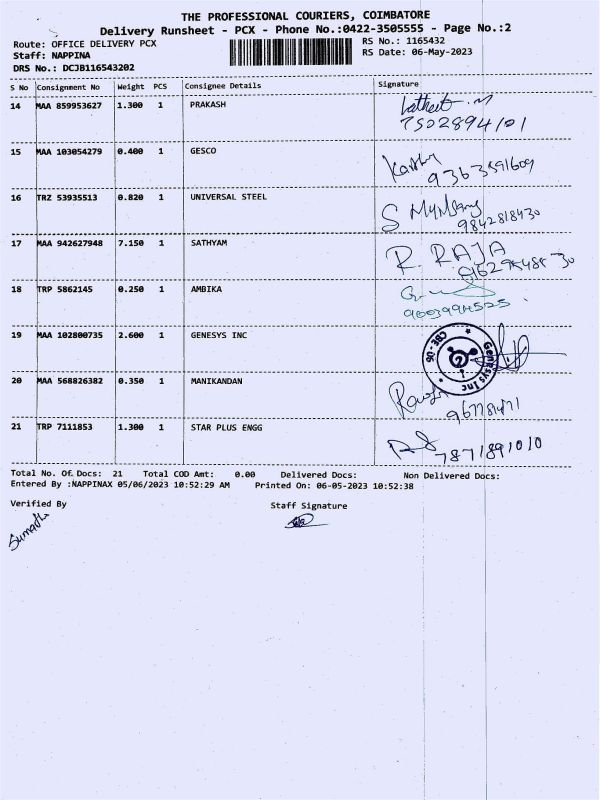 THE PROFESSIONAL COURIERS, COIMBATORE
Delivery Runsheet - PCX - Phone No.:0422-3505555 - Page No.:2
Route: OFFICE DELIVERY PCX
RS No.: 1165432
Staff: NAPPINA
RS Date: 06-May-2023
DRS No.: DCJB116543202
S No Consignment No Weight PCS Consignee Details Signature
14 MAA 859953627 1.300 1 PRAKASH
7502894101
15 MAA 103054279 0.400 1 GESCO
9363591609
16 TRZ 53935513 0.820 1 UNIVERSAL STEEL
9842818430
17 MAA 942627948 7.150 1 SATHYAM R. RAJA
18 TRP 5862145 0.250 1 AMBIKA
19 MAA 102800735 2.600 1 GENESYS INC
Genesys Inc ★ CBE - 06 ★
20 MAA 568826382 0.350 1 MANIKANDAN
21 TRP 7111853 1.300 1 STAR PLUS ENGG
7871891010
Total No. Of. Docs: 21 Total COD Amt: 0.00 Delivered Docs: Non Delivered Docs:
Entered By :NAPPINAX 05/06/2023 10:52:29 AM Printed On: 06-05-2023 10:52:38
Verified By Staff Signature
Sumathi